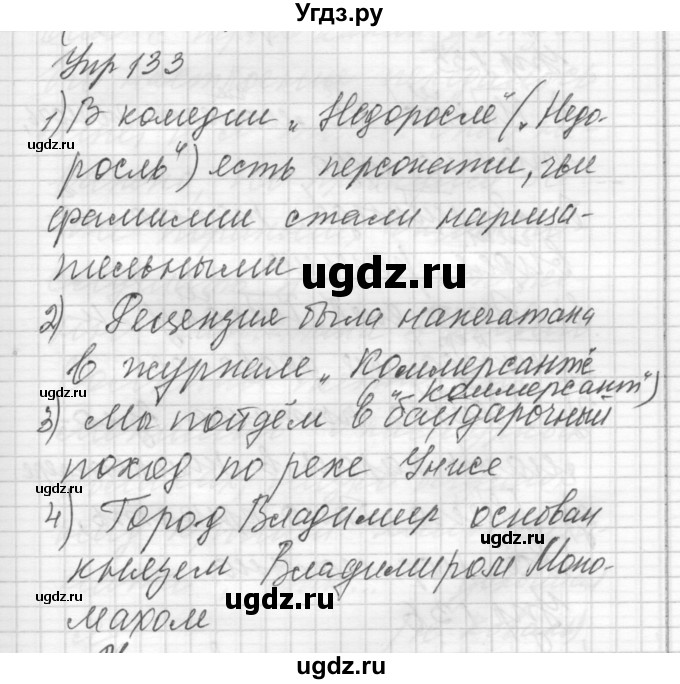 Угдз.ру
Упр 133
1) В комедии „Недоросле" („Недо-
росль") есть персонажи, чьи
фамилии стали нарица-
тельными
2) Рецензия была напечатана
в журнале „Коммерсанте
(„коммерсант")
3) Мы пойдём в байдарочный
поход по реке Унисе
4) Город Владимир основан
князем Владимиром Моно-
махом
ugdz.ru
ugdz.ru
ugdz.ru
ugdz.ru
ugdz.ru
ugdz.ru
ugdz.ru
ugdz.ru
ugdz.ru
ugdz.ru